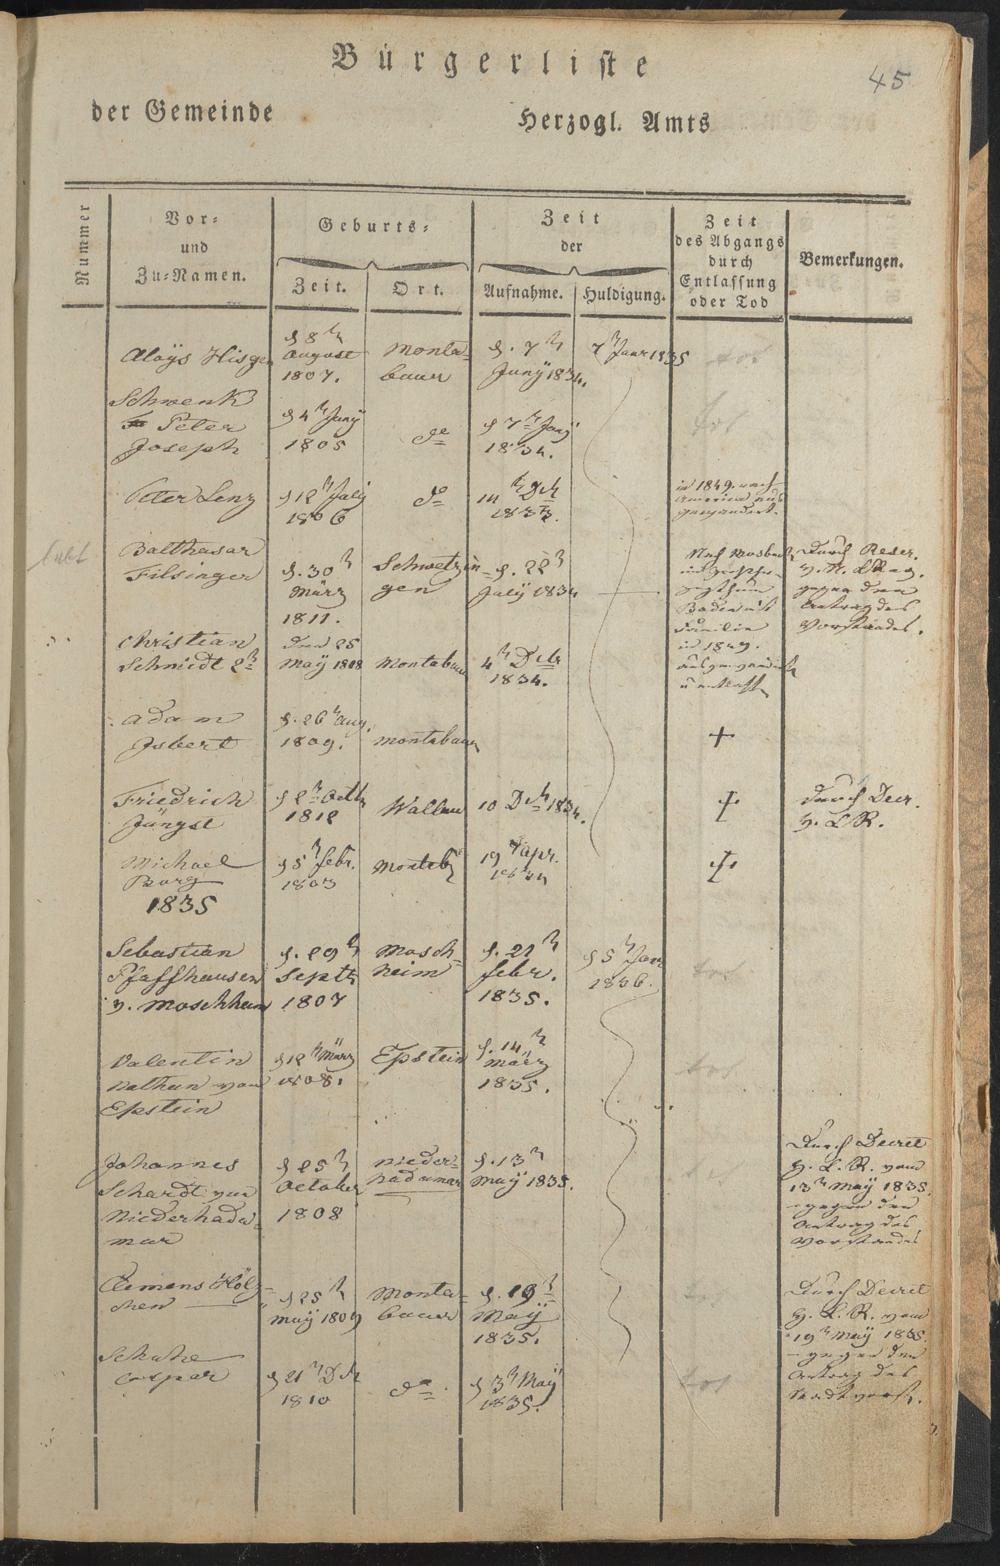 45
Bürgerliste
der Gemeinde Herzogl. Amts
Nummer
Vor-
und
Zu-Namen.
Geburts-
Zeit. Ort.
Zeit
der
Aufnahme. Huldigung.
Zeit
des Abgangs
durch
Entlassung
oder Tod
Bemerkungen.
Aloÿs Hisgen
d 8t
August
1807.
Monta-
baur
d. 7t
Junÿ 1834.
7t Janr 1835
tot
Schwenk
Peter
Joseph
d 4t Junÿ
1805
do
d 7t Junÿ
1834.
tot
Peter Lenz
d 12t Julÿ
1806
do
14t Dcb
1833.
in 1849. nach
America aus
gewandert.
lebt
Balthasar
Filsinger
d. 30t
März
1811.
Schwetzin-
gen
d. 22t
Julÿ 1834
Nach Mosbach
Baden mit
Familie
in 1849.
ausgewandert
u entlassen
Durch Reser.
gegen den
Antrag des
Vorstandes.
Christian
Schmidt 2t
den 25
Maÿ 1808
Montabaur
4t Dcbr
1834.
Adam
Isbert
d. 26t Aug.
1809.
Montabaur
+
Friedrich
Jüngst
d 2t Octb
1812
Wallau
10 Dcb 1834.
+
durch Decr.
h. L. R.
Michael
Burg
d 5t Febr.
1803
Montab
19t Apr.
1834
+
1835
Sebastian
Pfaffhausen
v. Moschheim
d. 29t
Septb
1807
Mosch-
heim
d. 21t
Febr.
1835.
d 5t Janr
1836.
tot
Valentin
Nathan von
Epstein
d 12t März
1808.
Epstein
d. 14t
März
1835.
tot
Johannes
Schardt von
Niederhada-
mar
d 25t
October
1808
Nieder-
hadamar
d. 13t
Maÿ 1835.
Durch Decret
h. L. R. vom
13t Maÿ 1835.
gegen den
Antrag des
Vorstandes
Clemens Hölz-
chen
d 25t
Maÿ 1809
Monta-
baur
d. 19t
Maÿ
1835.
Durch Decret
h. L. R. vom
19t Maÿ 1835
gegen den
Antrag des
Stadtvorst.
Caspar
d 21t Dcb
1810
do
d 3t Maÿ
1835.
tot